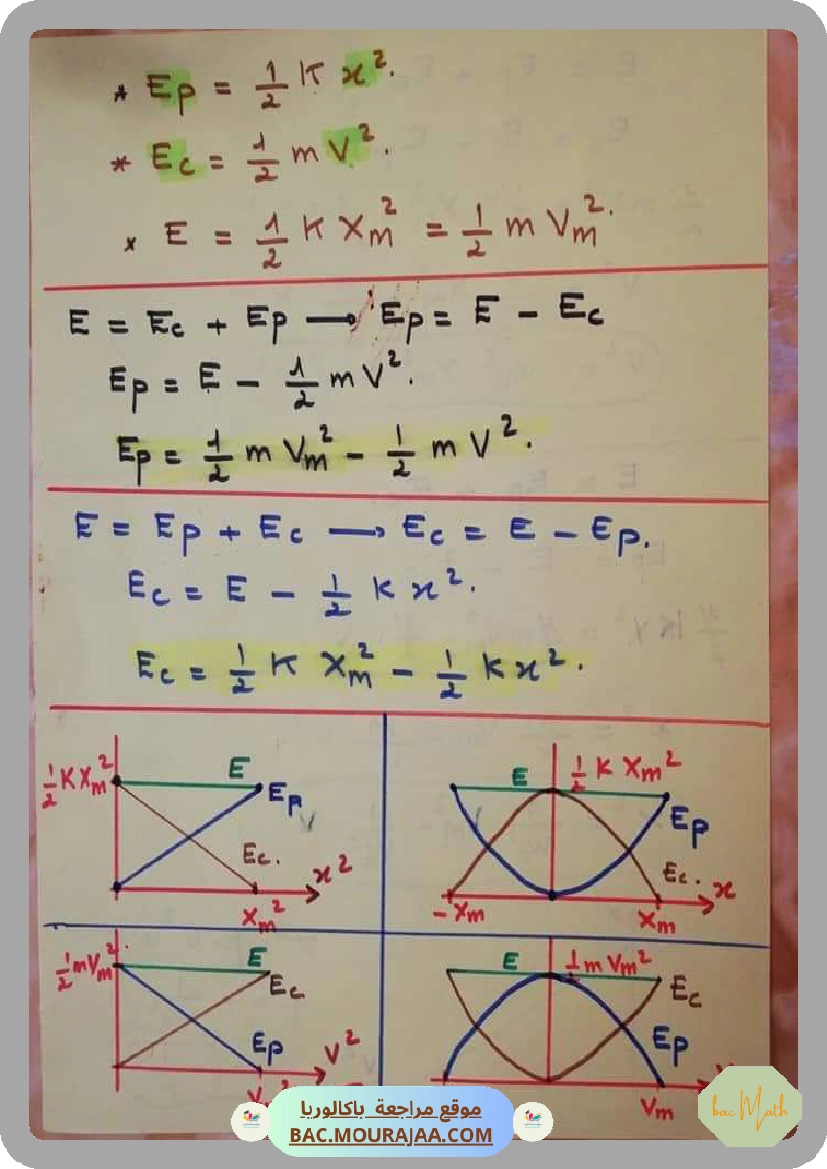 * Ep = 1/2 K x².
* Ec = 1/2 m V².
* E = 1/2 K Xm² = 1/2 m Vm².
E = Ec + Ep → Ep = E - Ec
Ep = E - 1/2 m V².
Ep = 1/2 m Vm² - 1/2 m V².
E = Ep + Ec → Ec = E - Ep.
Ec = E - 1/2 K x².
Ec = 1/2 K Xm² - 1/2 K x².
1/2 K Xm²
E
Ep
Ec.
x²
Xm²
E
1/2 K Xm²
Ep
Ec.
x
-Xm
Xm
1/2 m Vm²
E
Ec
Ep
V²
E
1/2 m Vm²
Ec
Ep
Vm
موقع مراجعة باكالوريا
BAC.MOURAJAA.COM
bac Math